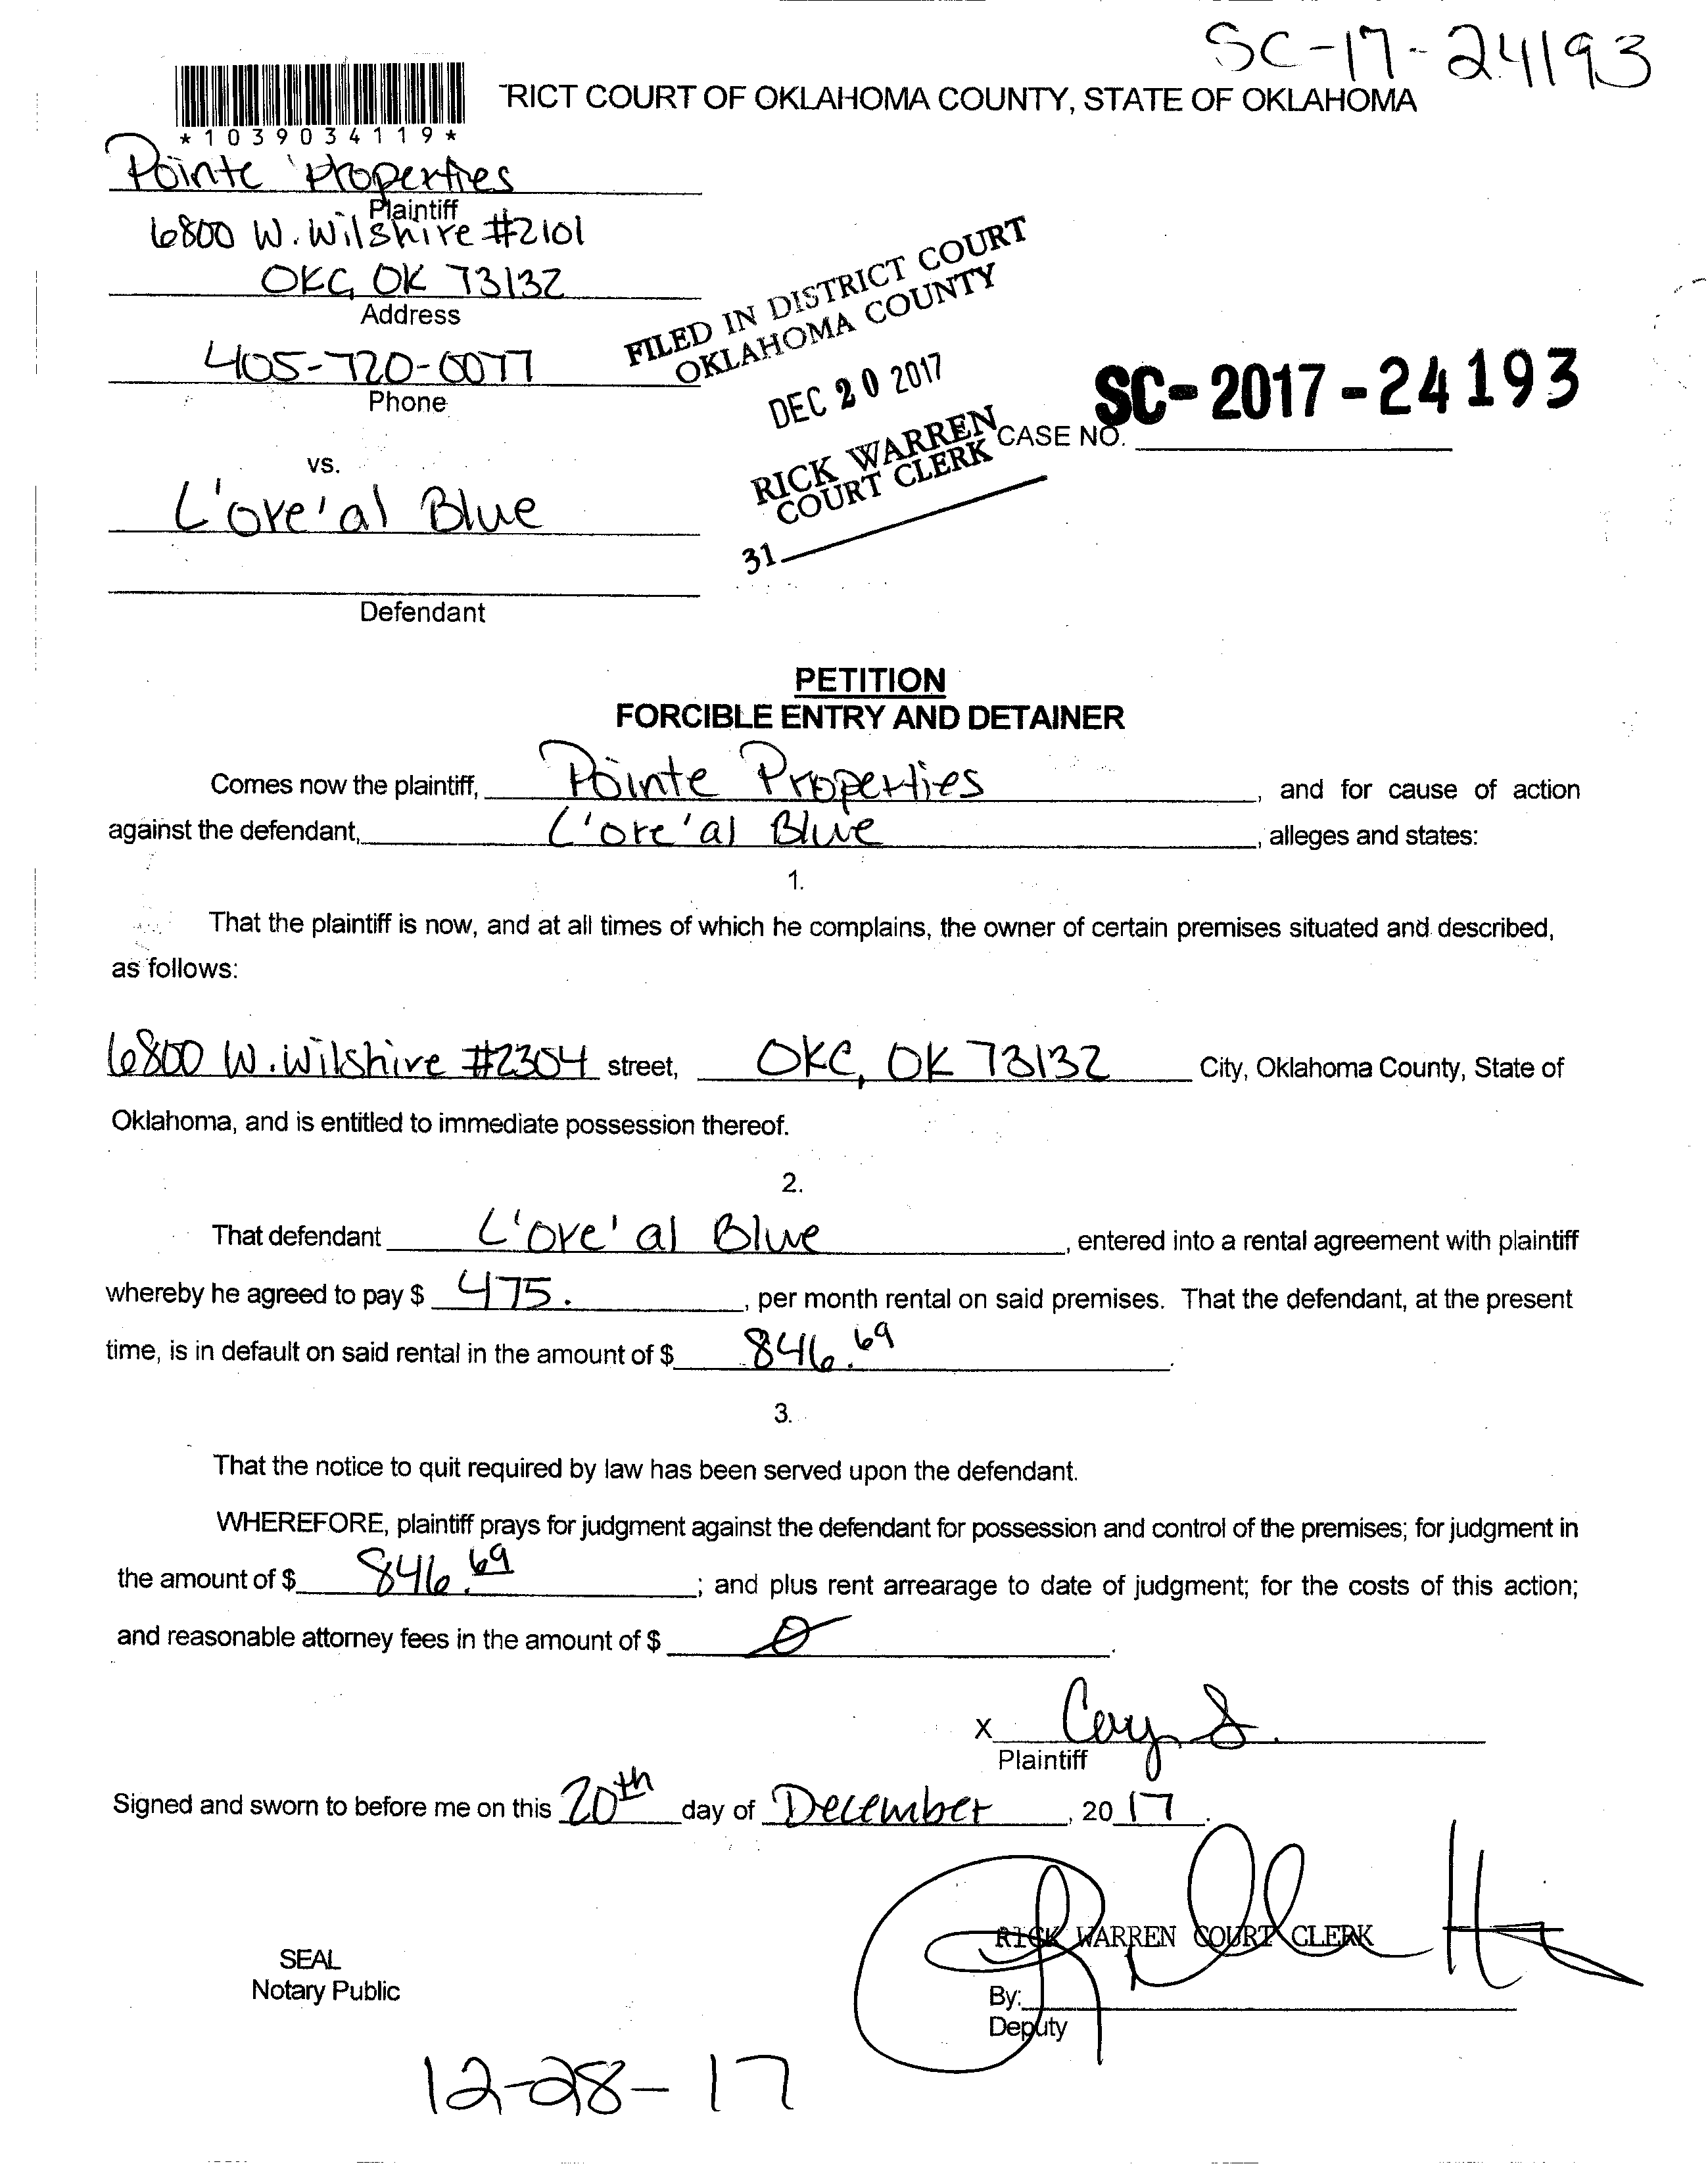 SC-17-24193
TRICT COURT OF OKLAHOMA COUNTY, STATE OF OKLAHOMA
*1039034119*
Pointe Properties
Plaintiff
6800 W. Wilshire #2101
OKC, OK 73132
Address
405-720-0077
Phone
FILED IN DISTRICT COURT
OKLAHOMA COUNTY
DEC 20 2017
RICK WARREN
COURT CLERK
31
SC-2017-24193
CASE NO.
vs.
L'ore'al Blue
Defendant
PETITION
FORCIBLE ENTRY AND DETAINER
Comes now the plaintiff, Pointe Properties, and for cause of action
against the defendant, L'ore'al Blue, alleges and states:
1.
That the plaintiff is now, and at all times of which he complains, the owner of certain premises situated and described,
as follows:
6800 W. Wilshire #2304 street, OKC, OK 73132 City, Oklahoma County, State of
Oklahoma, and is entitled to immediate possession thereof.
2.
That defendant L'ore'al Blue, entered into a rental agreement with plaintiff
whereby he agreed to pay $ 475., per month rental on said premises. That the defendant, at the present
time, is in default on said rental in the amount of $ 846.69.
3.
That the notice to quit required by law has been served upon the defendant.
WHEREFORE, plaintiff prays for judgment against the defendant for possession and control of the premises; for judgment in
the amount of $ 846.69; and plus rent arrearage to date of judgment; for the costs of this action;
and reasonable attorney fees in the amount of $ 0.
X Cory S.
Plaintiff
Signed and sworn to before me on this 20th day of December, 2017.
RICK WARREN COURT CLERK
SEAL
Notary Public
By:
Deputy
12-28-17